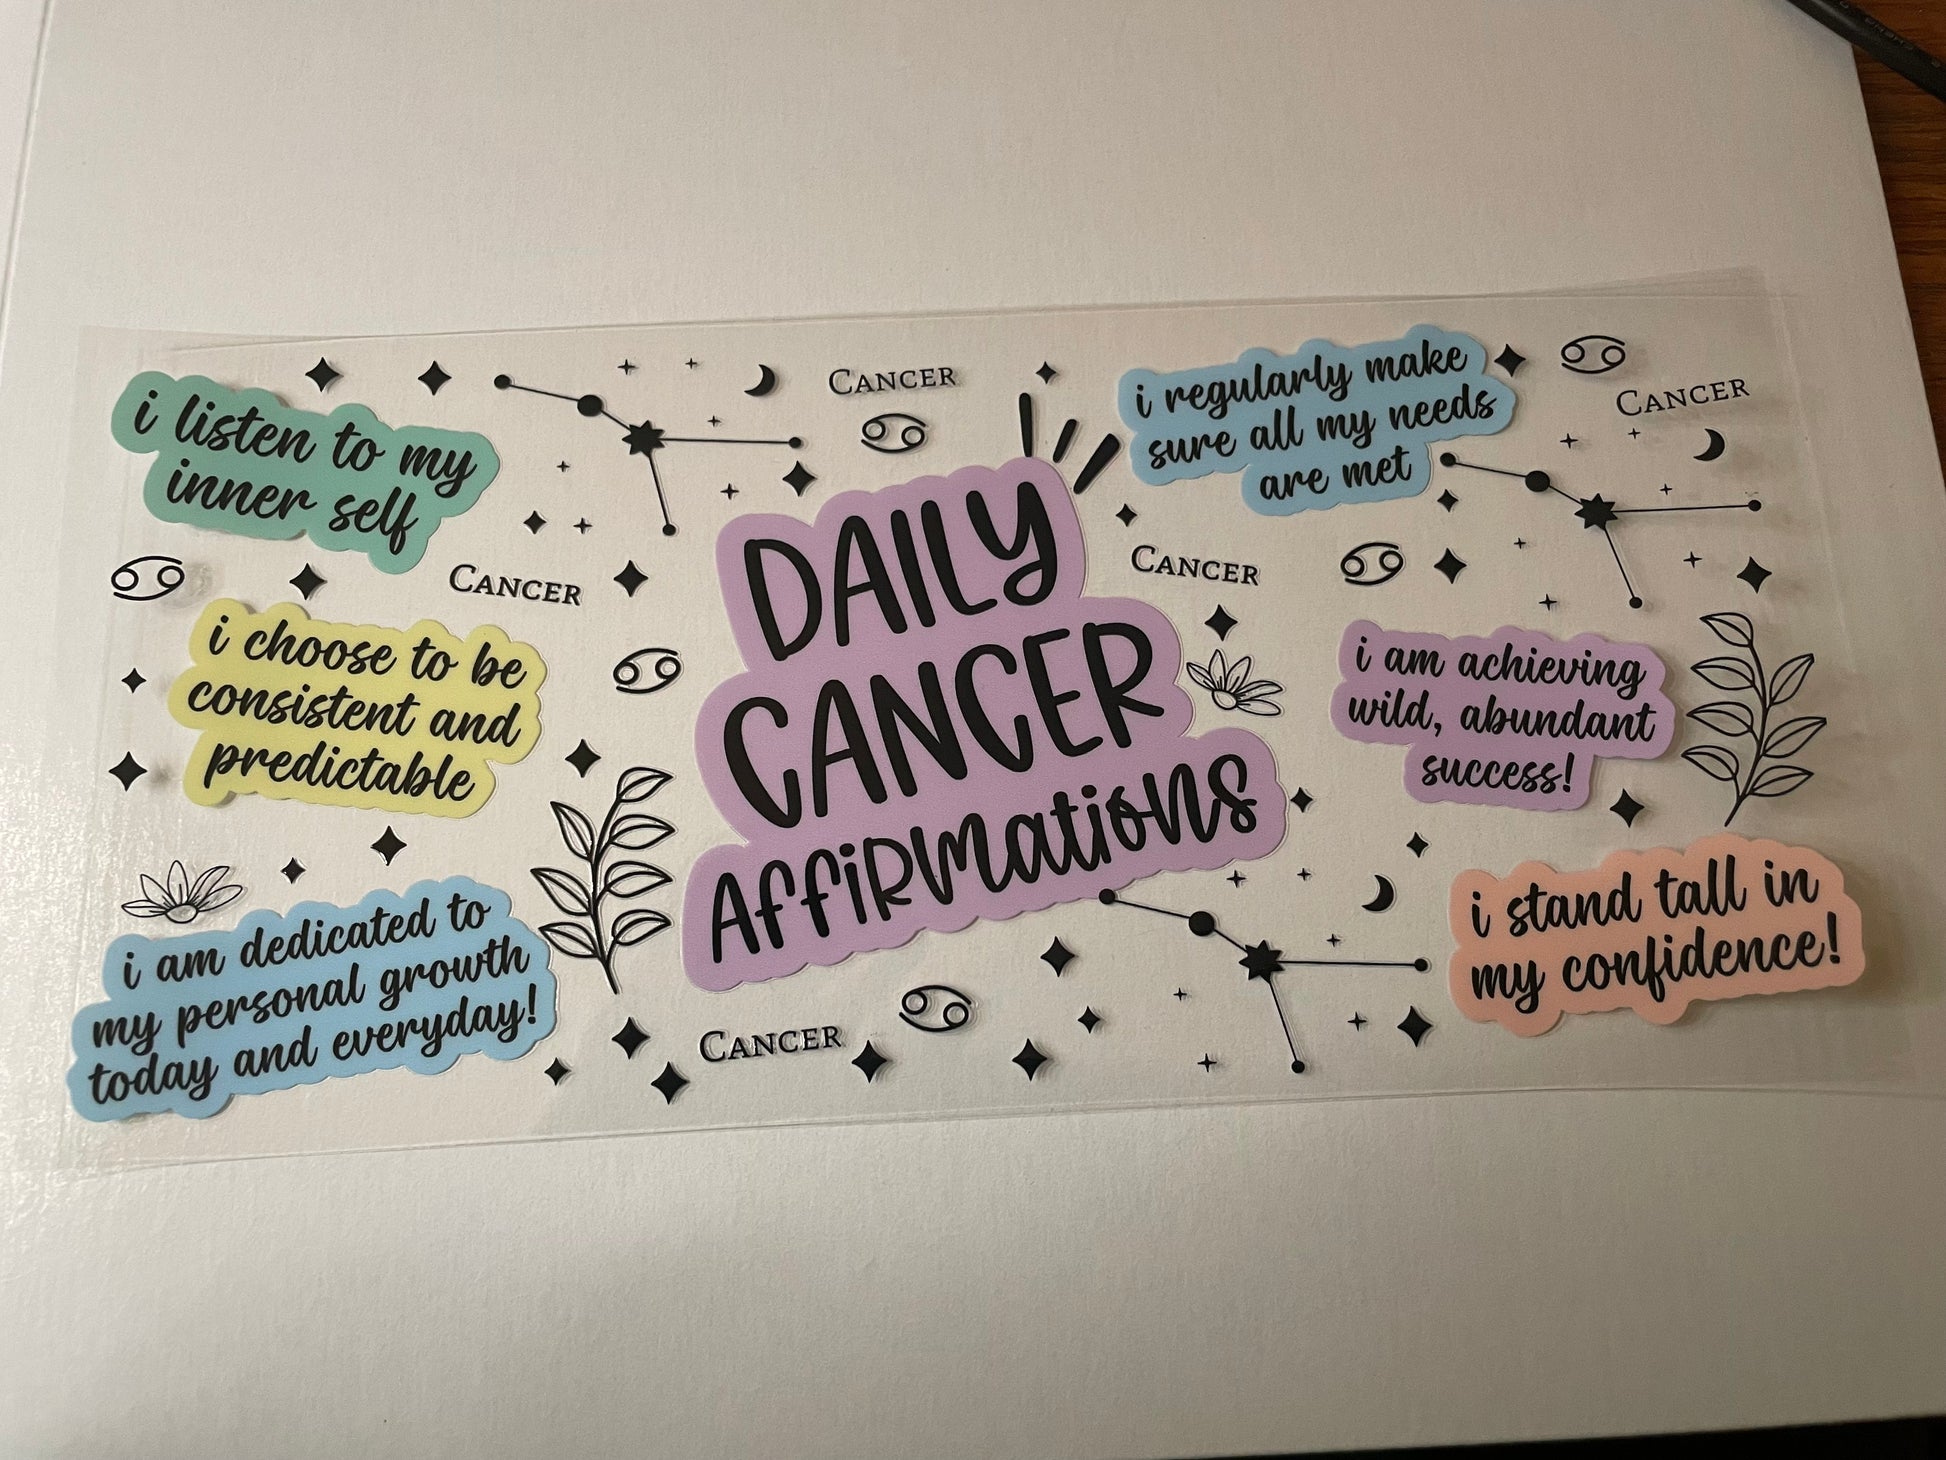 i listen to my
inner self
CANCER
i regularly make
sure all my needs
are met
CANCER
CANCER
DAILY
CANCER
AFFIRMATIONS
CANCER
i choose to be
consistent and
predictable
i am achieving
wild, abundant
success!
i am dedicated to
my personal growth
today and everyday!
CANCER
i stand tall in
my confidence!